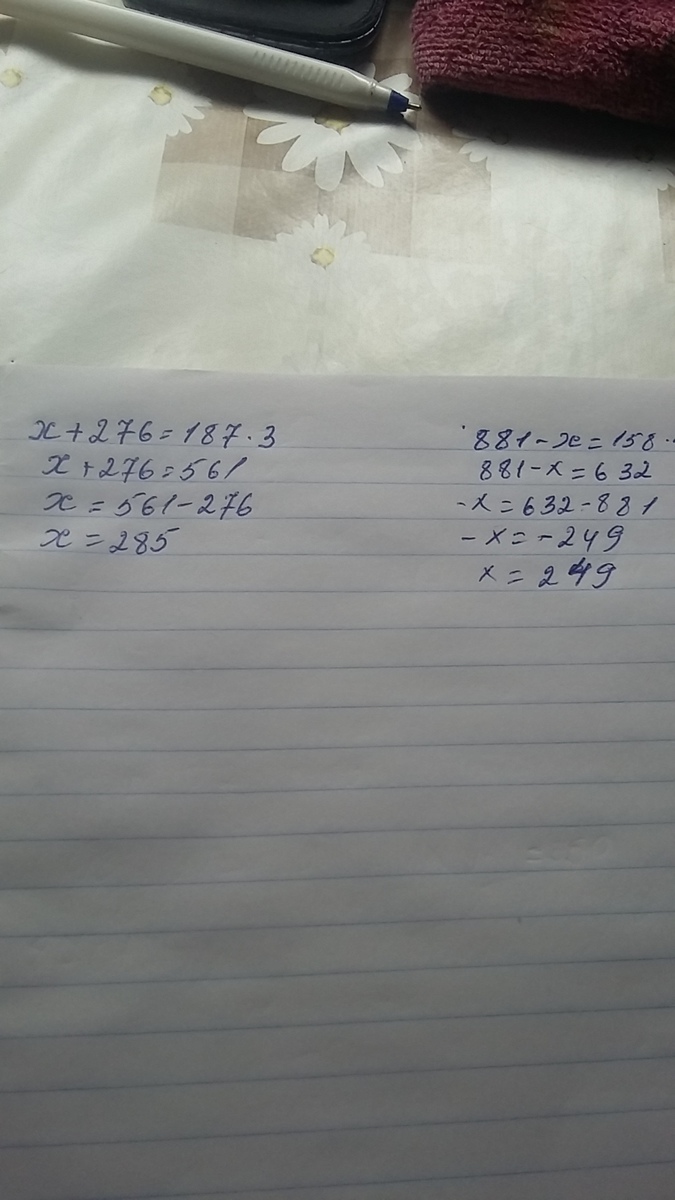 x+276=187·3
x+276=561
x=561-276
x=285
881-x=158·
881-x=632
-x=632-881
-x=-249
x=249